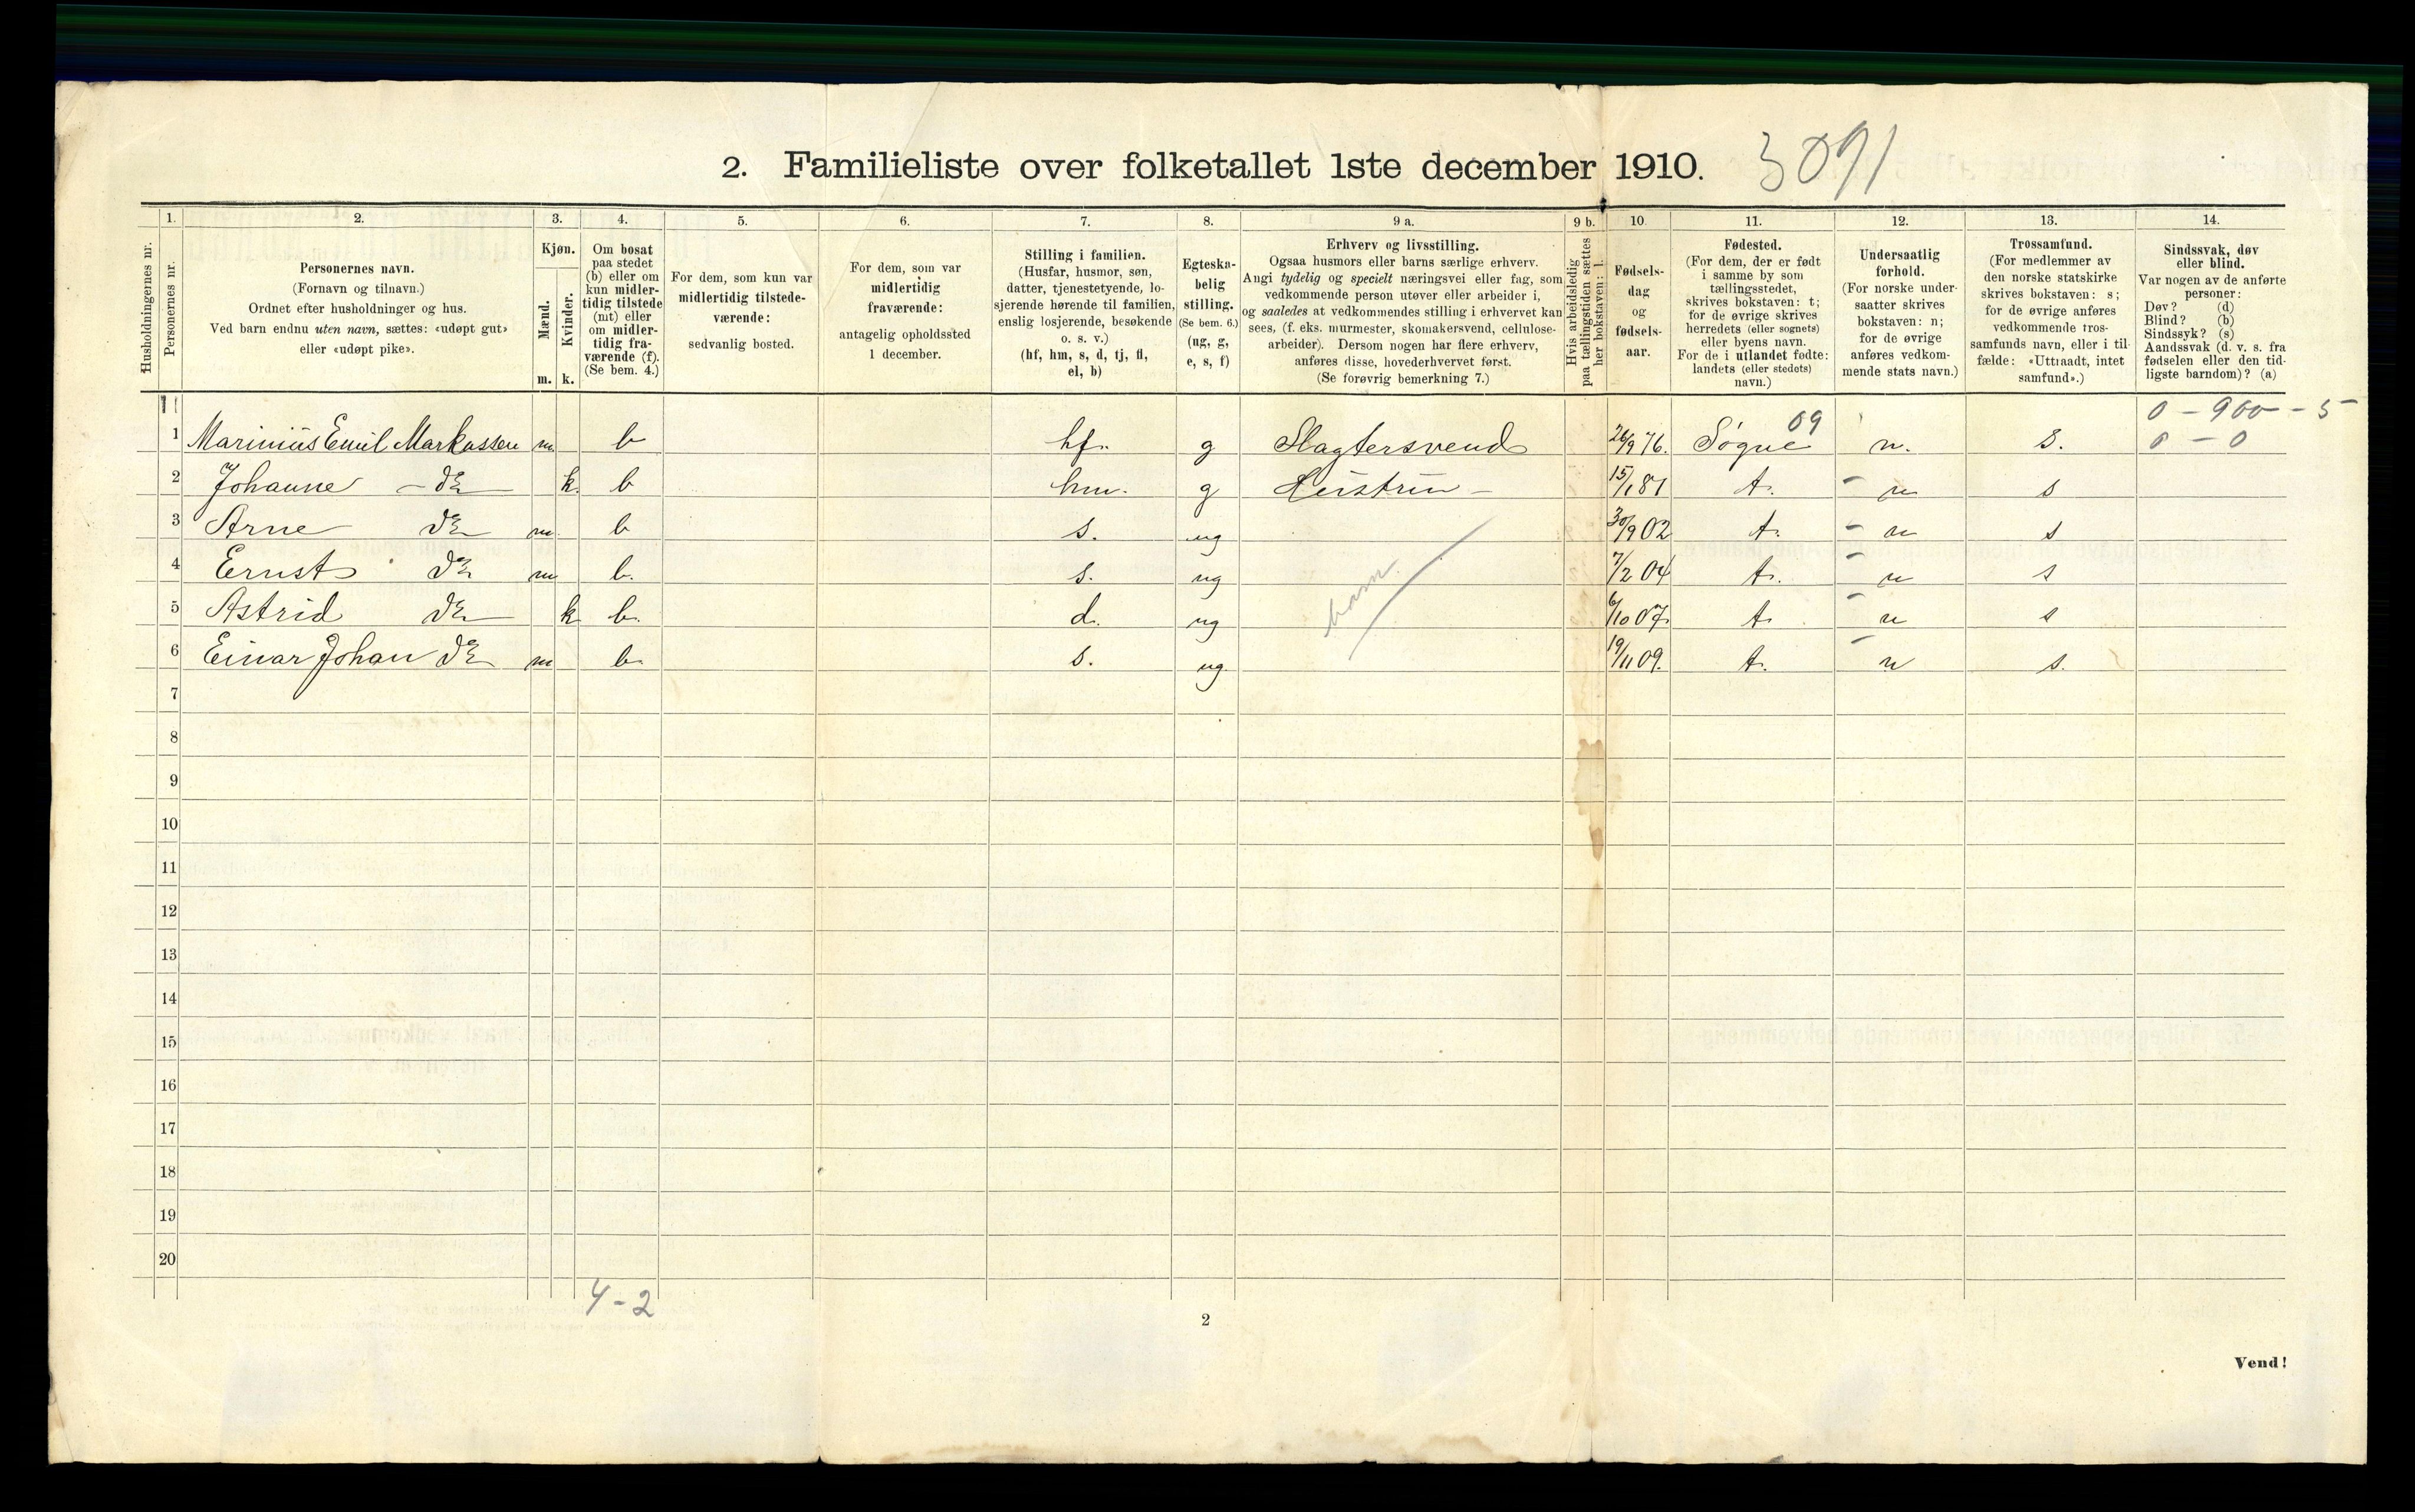 2. Familieliste over folketallet 1ste december 1910. 3091
Husholdningernes nr.
1.
Personernes nr.
2.
Personernes navn.
(Fornavn og tilnavn.)
Ordnet efter husholdninger og hus.
Ved barn endnu uten navn, sættes: «udøpt gut»
eller «udøpt pike».
3.
Kjøn.
Mænd.
Kvinder.
m. k.
4.
Om bosat
paa stedet
(b) eller om
kun midler-
tidig tilstede
(mt) eller
om midler-
tidig fra-
værende (f).
(Se bem. 4.)
5.
For dem, som kun var
midlertidig tilstede-
værende:
sedvanlig bosted.
6.
For dem, som var
midlertidig
fraværende:
antagelig opholdssted
1 december.
7.
Stilling i familien.
(Husfar, husmor, søn,
datter, tjenestetyende, lo-
sjerende hørende til familien,
enslig losjerende, besøkende
o. s. v.)
(hf, hm, s, d, tj, fl,
el, b)
8.
Egteska-
belig
stilling.
(Se bem. 6.)
(ug, g,
e, s, f)
9 a.
Erhverv og livsstilling.
Ogsaa husmors eller barns særlige erhverv.
Angi tydelig og specielt næringsvei eller fag, som
vedkommende person utøver eller arbeider i,
og saaledes at vedkommendes stilling i erhvervet kan
sees, (f. eks. murmester, skomakersvend, cellulose-
arbeider). Dersom nogen har flere erhverv,
anføres disse, hovederhvervet først.
(Se forøvrig bemerkning 7.)
9 b.
Hvis arbeidsledig
paa tællingstiden sættes
her bokstaven: l.
10.
Fødsels-
dag
og
fødsels-
aar.
11.
Fødested.
(For dem, der er født
i samme by som
tællingsstedet,
skrives bokstaven: t;
for de øvrige skrives
herredets (eller sognets)
eller byens navn.
For de i utlandet fødte:
landets (eller stedets)
navn.)
12.
Undersaatlig
forhold.
(For norske under-
saatter skrives
bokstaven: n;
for de øvrige
anføres vedkom-
mende stats navn.)
13.
Trossamfund.
(For medlemmer av
den norske statskirke
skrives bokstaven: s;
for de øvrige anføres
vedkommende tros-
samfunds navn, eller i til-
fælde: «Uttraadt, intet
samfund».)
14.
Sindssvak, døv
eller blind.
Var nogen av de anførte
personer:
Døv? (d)
Blind? (b)
Sindssyk? (s)
Aandssvak (d. v. s. fra
fødselen eller den tid-
ligste barndom)? (a)
09 0 - 900 - 5
1 Marinius Emil Markussen m b hf. g Slagtersvend 26/9 76. Søgne n. s. 0 - 0
2 Johanne - do k. b hm. g Hustru - 15/1 81 t. - n s
3 Arne do m b s. ug 30/9 02 t. - n s
4 Ernst do m b. s. ug 7/2 04 t. - n s
5 Astrid do k b. d. ug barn. 6/10 07. t. - n s
6 Einar Johan do m b. s. ug. 19/11 09. t. - n s.
7
8
9
10
11
12
13
14
15
16
17
18
19
20
4-2
2
Vend!